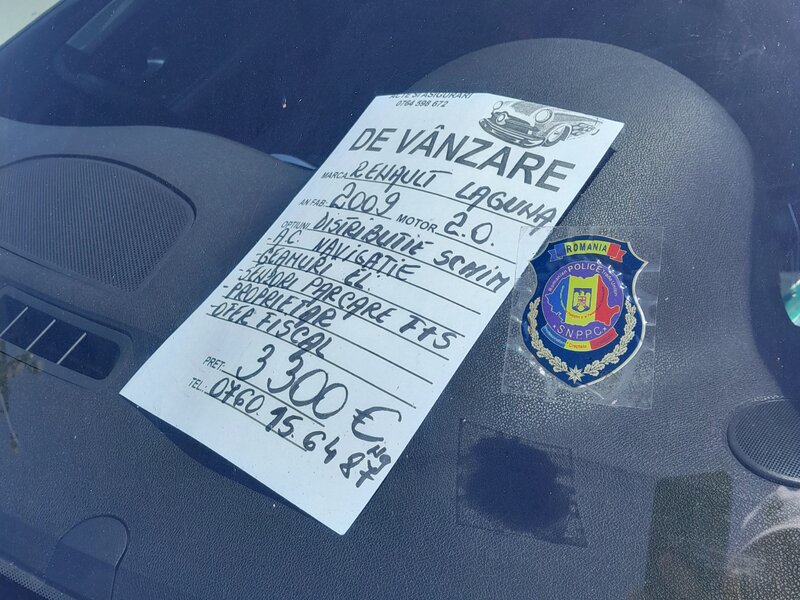 ACTE SI ASIGURARI
0764 598 672
DE VÂNZARE
MARCA RENAULT LAGUNA
AN FAB. 2009 MOTOR 2.0.
OPTIUNI DISTRIBUTIE SCHIM
A.C. NAVIGATIE
-GEAMURI EL.
-SENZORI PARCARE F+S
-PROPRIETAR
-OFER FISCAL
PRET: 3300 € NG
TEL.: 0760.15.64 87
ROMANIA
POLICE
SNPPC